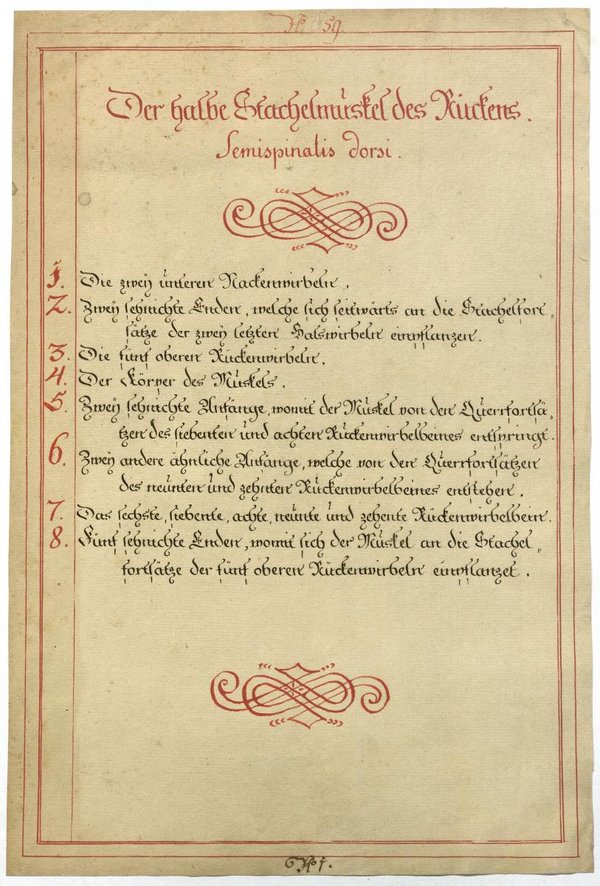 N. 59.
Der halbe Stachelmuskel des Rückens.
Semispinalis dorsi.
1. Die zwey unteren Nackenwirbeln.
2. Zwey sehnichte Enden, welche sich seitwärts an die Stachelfort=
sätze der zwey letzten Halswirbeln einpflanzen.
3. Die fünf oberen Rückenwirbeln.
4. Der Körper des Muskels.
5. Zwey sehnichte Anfänge, womit der Muskel von den Querrfortsä=
tzen des siebenten und achten Rückenwirbelbeines entspringt.
6. Zwey andere ähnliche Anfänge, welche von den Querrfortsätzen
des neunten und zehnten Rückenwirbelbeines entstehen.
7. Das sechste, siebente, achte, neunte und zehente Rückenwirbelbein.
8. Fünf sehnichte Enden, womit sich der Muskel an die Stachel=
fortsätze der fünf oberen Rückenwirbeln einpflanzet.